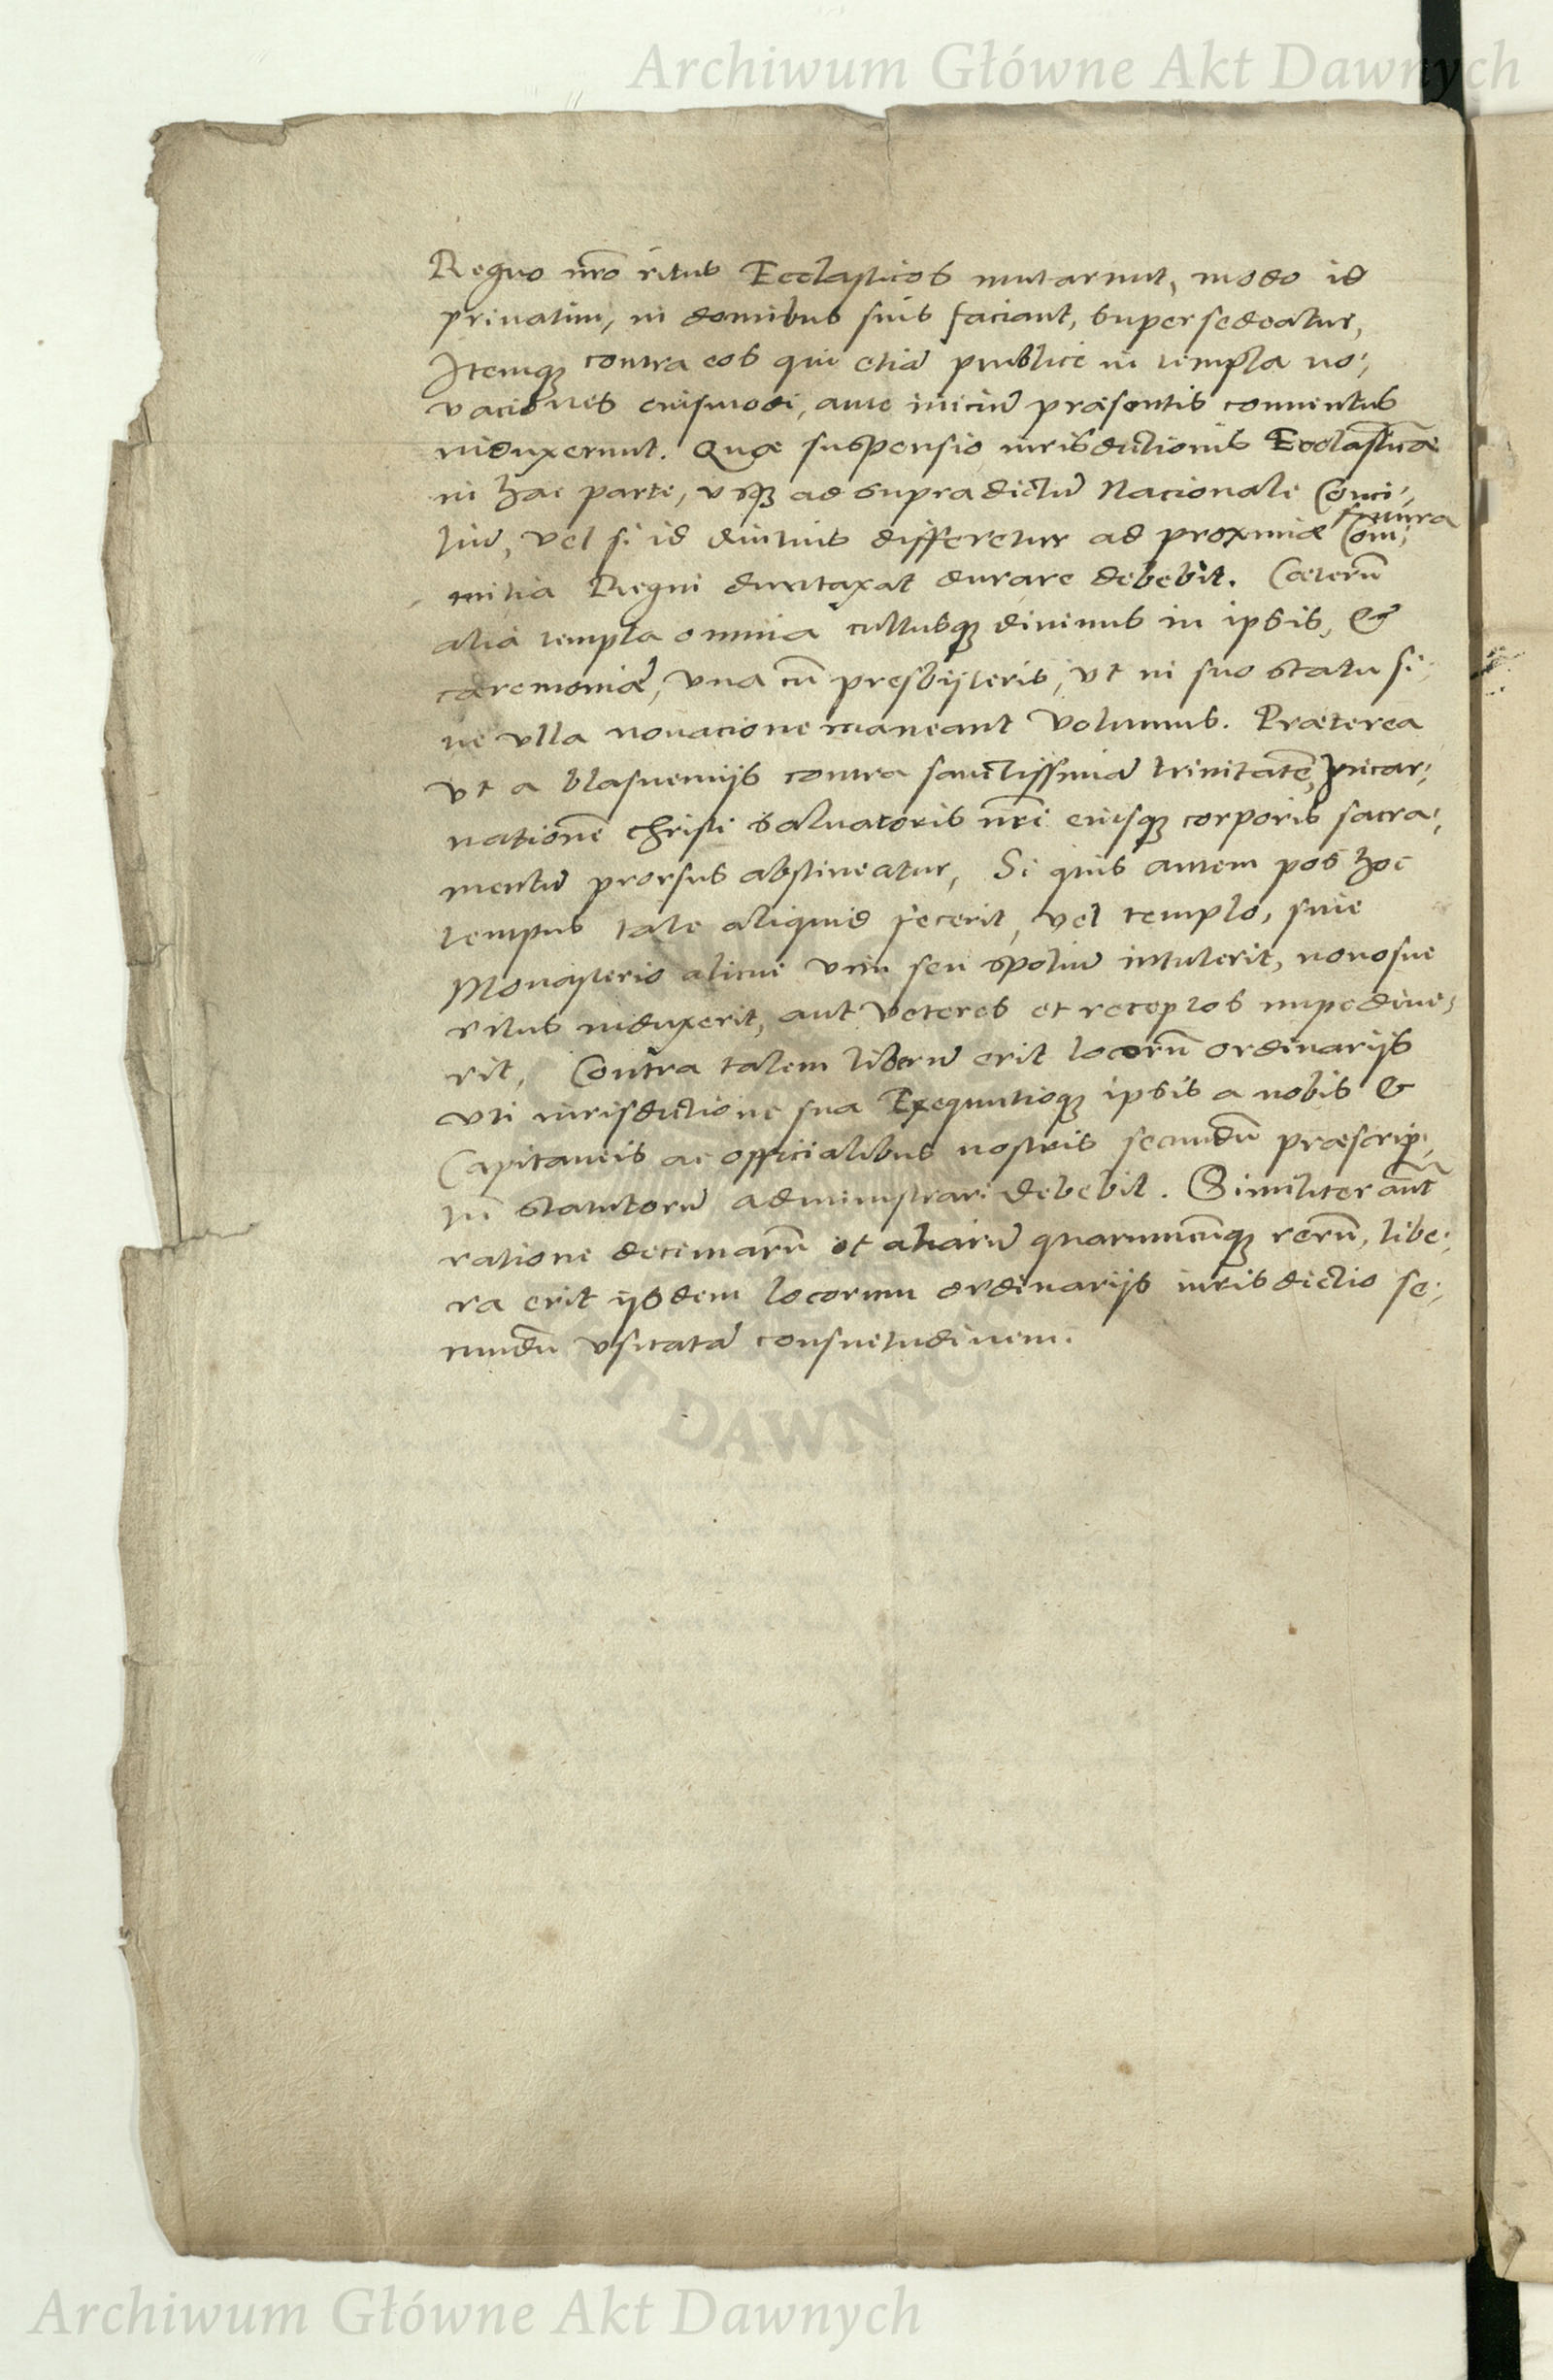 Archiwum Główne Akt Dawnych
Regno nr̃o ritus Ecclasticos mutarunt, modo id
priuatim, in domibus suis faciant, supersedeatur,
Itemq; contra eos qui etiã publice in templa no,
uaciones eiusmodi, ante iniciũ præsentis conuentus
induxerunt. Quæ suspensio iurisdictionis Ecclasticæ
in hac parte, usq; ad supradictũ Nacionale Conci,
liũ, vel si id diutius differetur ad proxime futura Com,
mitia Regni duntaxat durare debebit. Cæterũ
alia templa omnia cultusq; diuinus in ipsis, &
cæremoniæ, vna cũ presbijteris, vt in suo statu si,
ne vlla nouacione maneant volumus. Præterea
vt a blasuemijs contra sanctissimã trinitatẽ, incar,
nationẽ christi saluatoris nr̃i eiusq; corporis sacra,
mentũ prorsus abstineatur, Si quis autem pos hoc
tempus tale aliquid fecerit, vel templo, siue
Monasterio alicui vim seu spoliũ intulerit, nouosue
ritus induxerit, aut veteres et receptos impediue,
rit, Contra talem liberũ erit locorũ ordinarijs
vti iurisdictione sua Exequutioq; ipsis a nobis &
Capitaneis ac officialibus nostris secundũ præscrip,
tũ statutorũ administrari debebit. Similiter aut̃
ratione decimarũ et aliarũ quarumcũq; rerũ, libe,
ra erit ijsdem locorum ordinarijs iurisdictio se,
cundũ vsitatã consuetudinem.
AKT DAWNYCH
Archiwum Główne Akt Dawnych